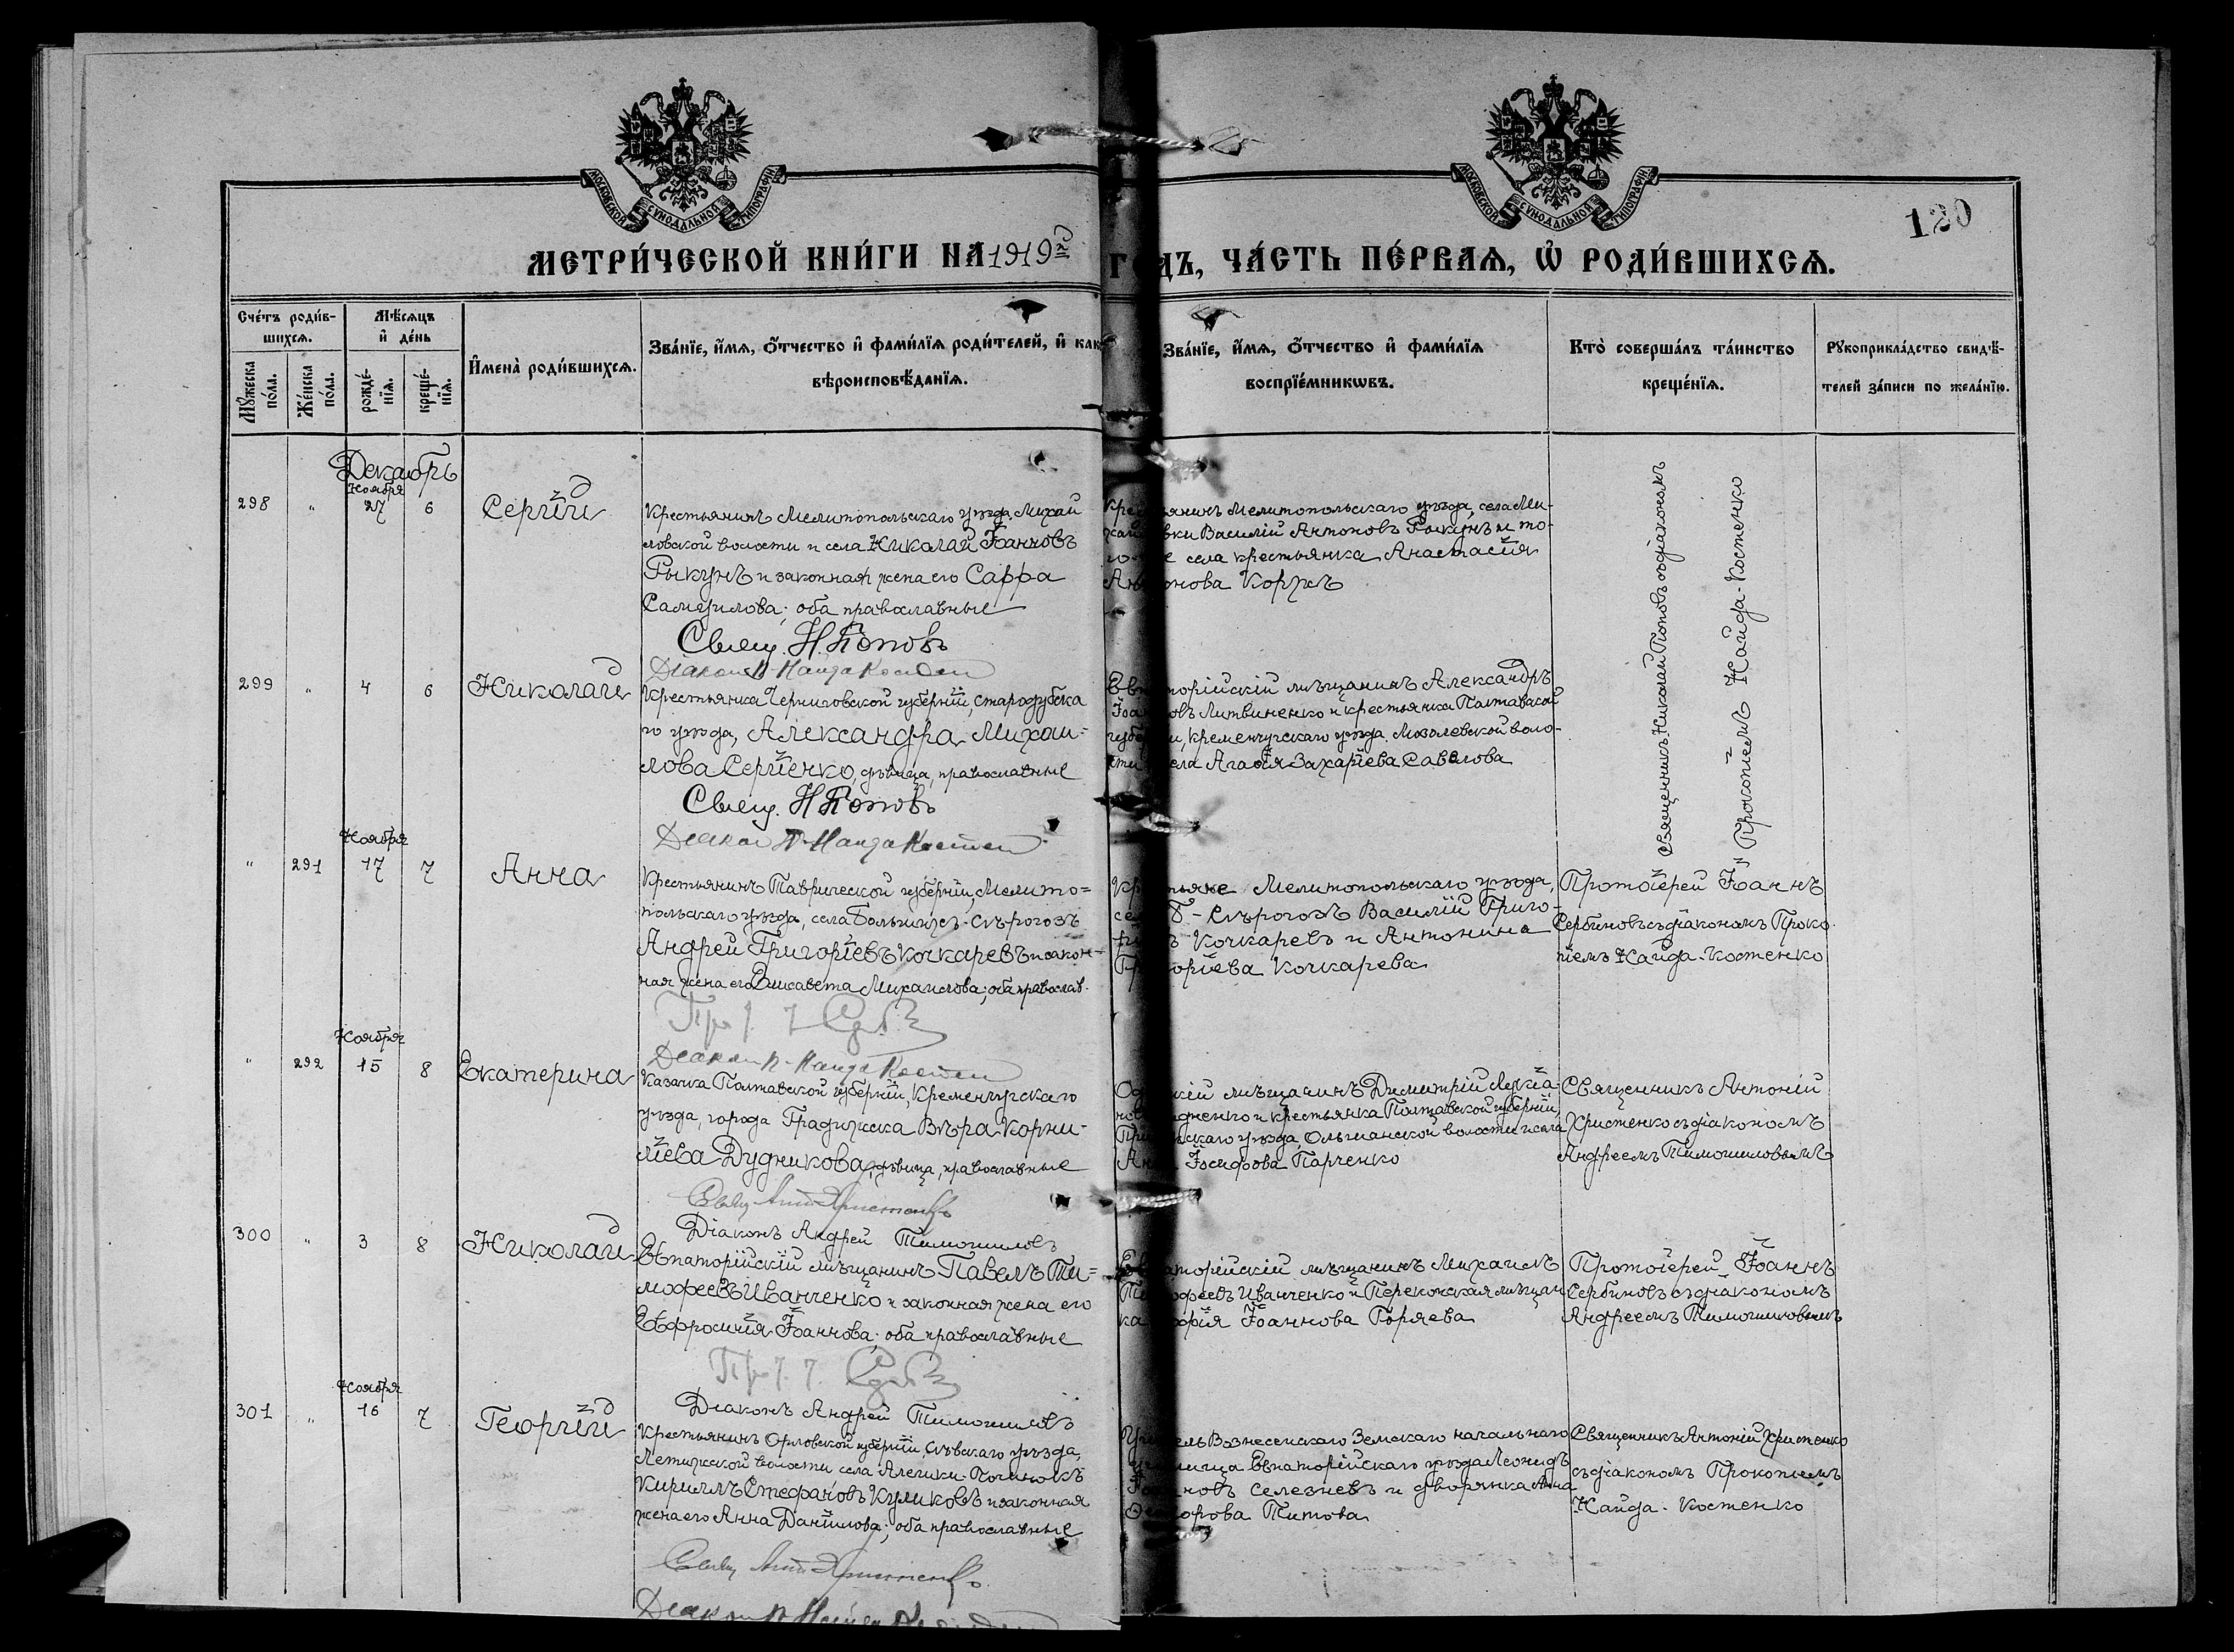 МОСКОВСКОЙ СѴНОДАЛЬНОЙ ТИПОГРАФІИ
МОСКОВСКОЙ СѴНОДАЛЬНОЙ ТИПОГРАФІИ
120
МЕТРИ́ЧЕСКОЙ КНИ́ГИ НА 1919й ГОДЪ, ЧА́СТЬ ПЕ́РВАЯ, Ѡ҆ РОДИ́ВШИХСЯ.
Сче́тъ роди́в-
шихся.
Мѣ́сяцъ
и҆ де́нь
Му́жеска по́ла.
Же́нска по́ла.
рожде́-
нїя.
креще́-
нїя.
И҆мена̀ роди́вшихся.
Зва́нїе, и҆́мя, ѻ҆́тчество и҆ фами́лїя роди́телей, и҆ как
вѣроисповѣ́данїя.
Зва́нїе, и҆́мя, ѻ҆́тчество и҆ фами́лїя
воспрїе́мникѡвъ.
Кто̀ соверша́лъ та́инство
креще́нїя.
Рукоприкла́дство свидѣ́-
телей за́писи по жела́нїю.
Декабрь
298 " Ноября 27 6 Сергій
Крестьянинъ Мелитопольскаго уѣзда, Михай
ловской волости и села Николай Іоанновъ
Рыкунъ и законная жена его Сарра
Самуилова; оба православные
Свящ. Н. Поповъ
Діаконъ П. Найда Костен
Крестьянинъ Мелитопольскаго уѣзда, села Ми-
хайловки Василій Антоновъ Рыкунъ и то-
го же села крестьянка Анастасія
Антонова Коржъ
Священникъ Николай Поповъ съ діакономъ
Прокопіемъ Найда-Костенко
299 " 4 6 Николай
Крестьянка Черниговской губерніи, Стародубска
го уѣзда, Александра Михаи-
лова Сергіенко, дѣвица, православные
Свящ. Н. Поповъ
Діакон П. Найда Костен
Евпаторійскій мѣщанинъ Александръ
Іоанновъ Литвиненко и крестьянка Полтавской
губерніи, Кременчугскаго уѣзда, Мозолевской воло-
сти и села Агафія Захаріева Савелова
" 291 Ноября 17 7 Анна
Крестьянинъ Таврической губерніи, Мелито-
польскаго уѣзда, села Большихъ-Сѣрогозъ
Андрей Григоріевъ Кочкаревъ и закон-
ная жена его Елисавета Михаилова; оба православ.
Діакон П. Найда Костен
Крестьяне Мелитопольскаго уѣзда,
села Б-Сѣрогозъ Василій Григо-
ріевъ Кочкаревъ и Антонина
Григоріева Кочкарева
Протоіерей Іоаннъ
Сербиновъ съ діакономъ Проко-
піемъ Найда-Костенко
" 292 Ноября 15 8 Екатерина
Казачка Полтавской губерніи, Кременчугскаго
уѣзда, города Градижска Вѣра Корни-
ліева Дудникова, дѣвица, православные
Свящ Ант Христенко
Діаконъ Андрей Тимошиловъ
мѣщанинъ Димитрій Лукіа-
и крестьянка Полтавской губерніи,
уѣзда, Ольшанской волости и села
Анна Іосифова Парченко
Священникъ Антоній
Христенко съ діакономъ
Андреемъ Тимошиловымъ
300 " 3 8 Николай
Евпаторійскій мѣщанинъ Павелъ Ти-
мофеевъ Иванченко и законная жена его
Евфросинія Іоаннова; оба православные
Діаконъ Андрей Тимошиловъ
Евпаторійскій мѣщанинъ Михаилъ
Тимофеевъ Иванченко и Перекопская мѣщан
ка Софія Іоаннова Горяева
Протоіерей Іоаннъ
Сербиновъ съ діакономъ
Андреемъ Тимошиловымъ
301 " Ноября 16 7 Георгій
Крестьянинъ Орловской губерніи, Сѣвскаго уѣзда,
волости села
Кириллъ Стефановъ Куликовъ и законная
жена его Анна Даніилова; оба православные
Свящ Ант Христенко
Діакон П. Найда
Учитель Вознесенскаго Земскаго начальнаго
училища Евпаторійскаго уѣзда Леонидъ
Селезневъ и дворянка Анна
Ѳеодорова Титова
Священникъ Антоній Христенко
съ діакономъ Прокопіемъ
Найда-Костенко